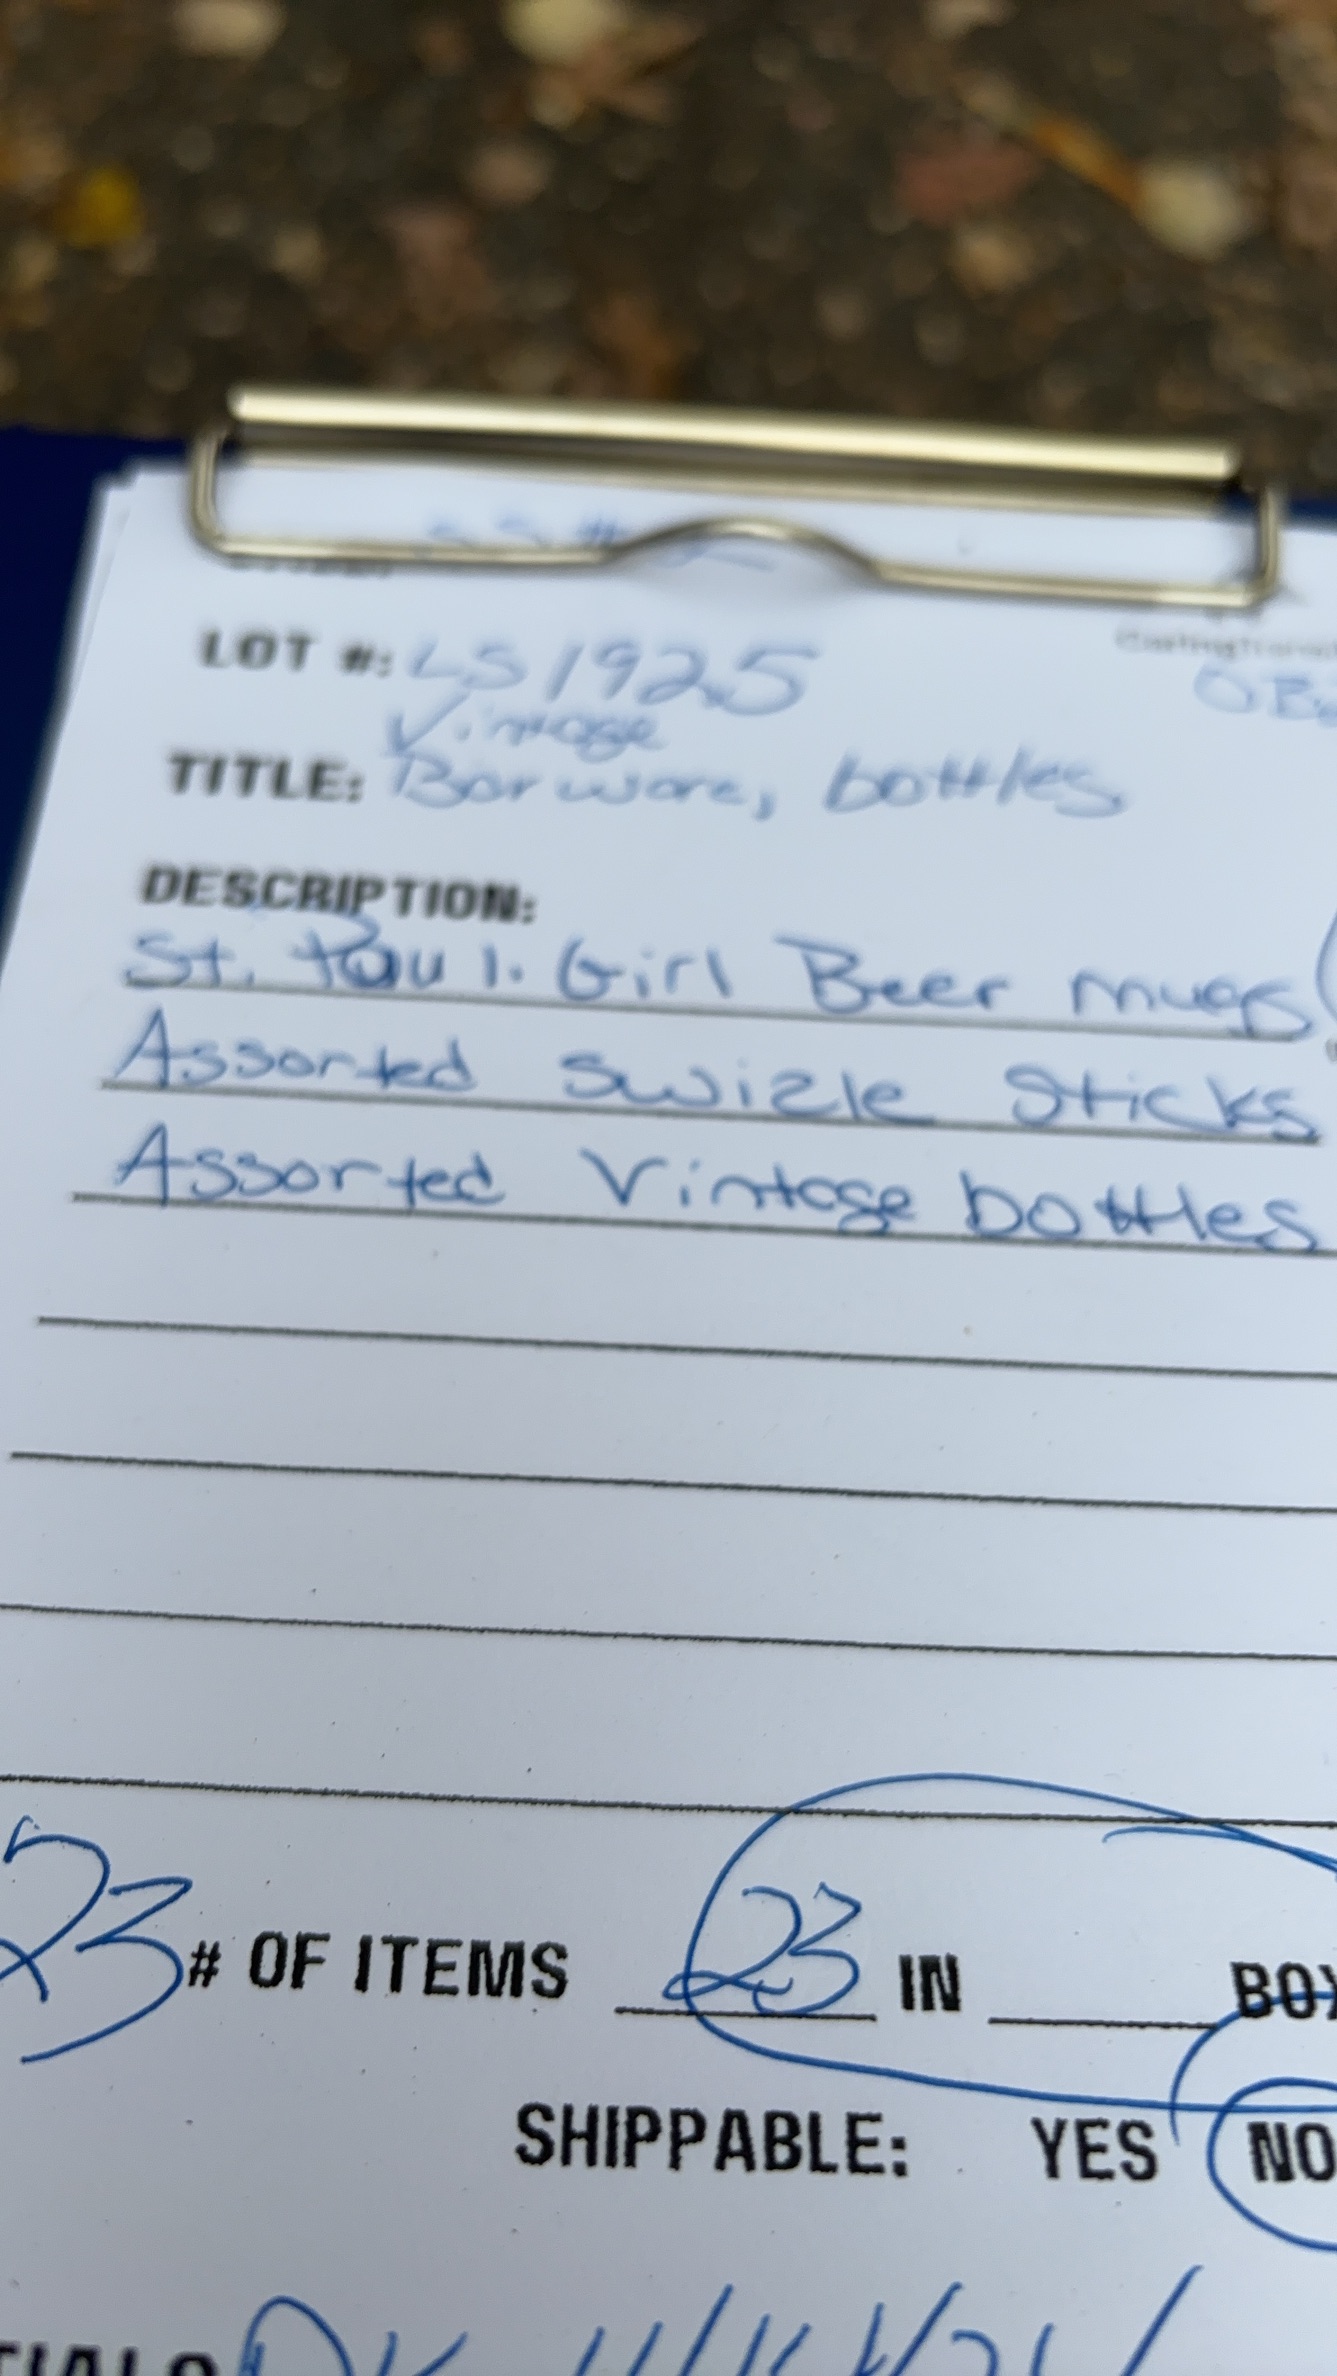 LOT #: LS1925
Vintage
TITLE: Barware, bottles
DESCRIPTION:
St. Paul. Girl Beer mugs
Assorted Swizle Sticks
Assorted Vintage bottles
23 # OF ITEMS 23 IN BOX
SHIPPABLE: YES NO